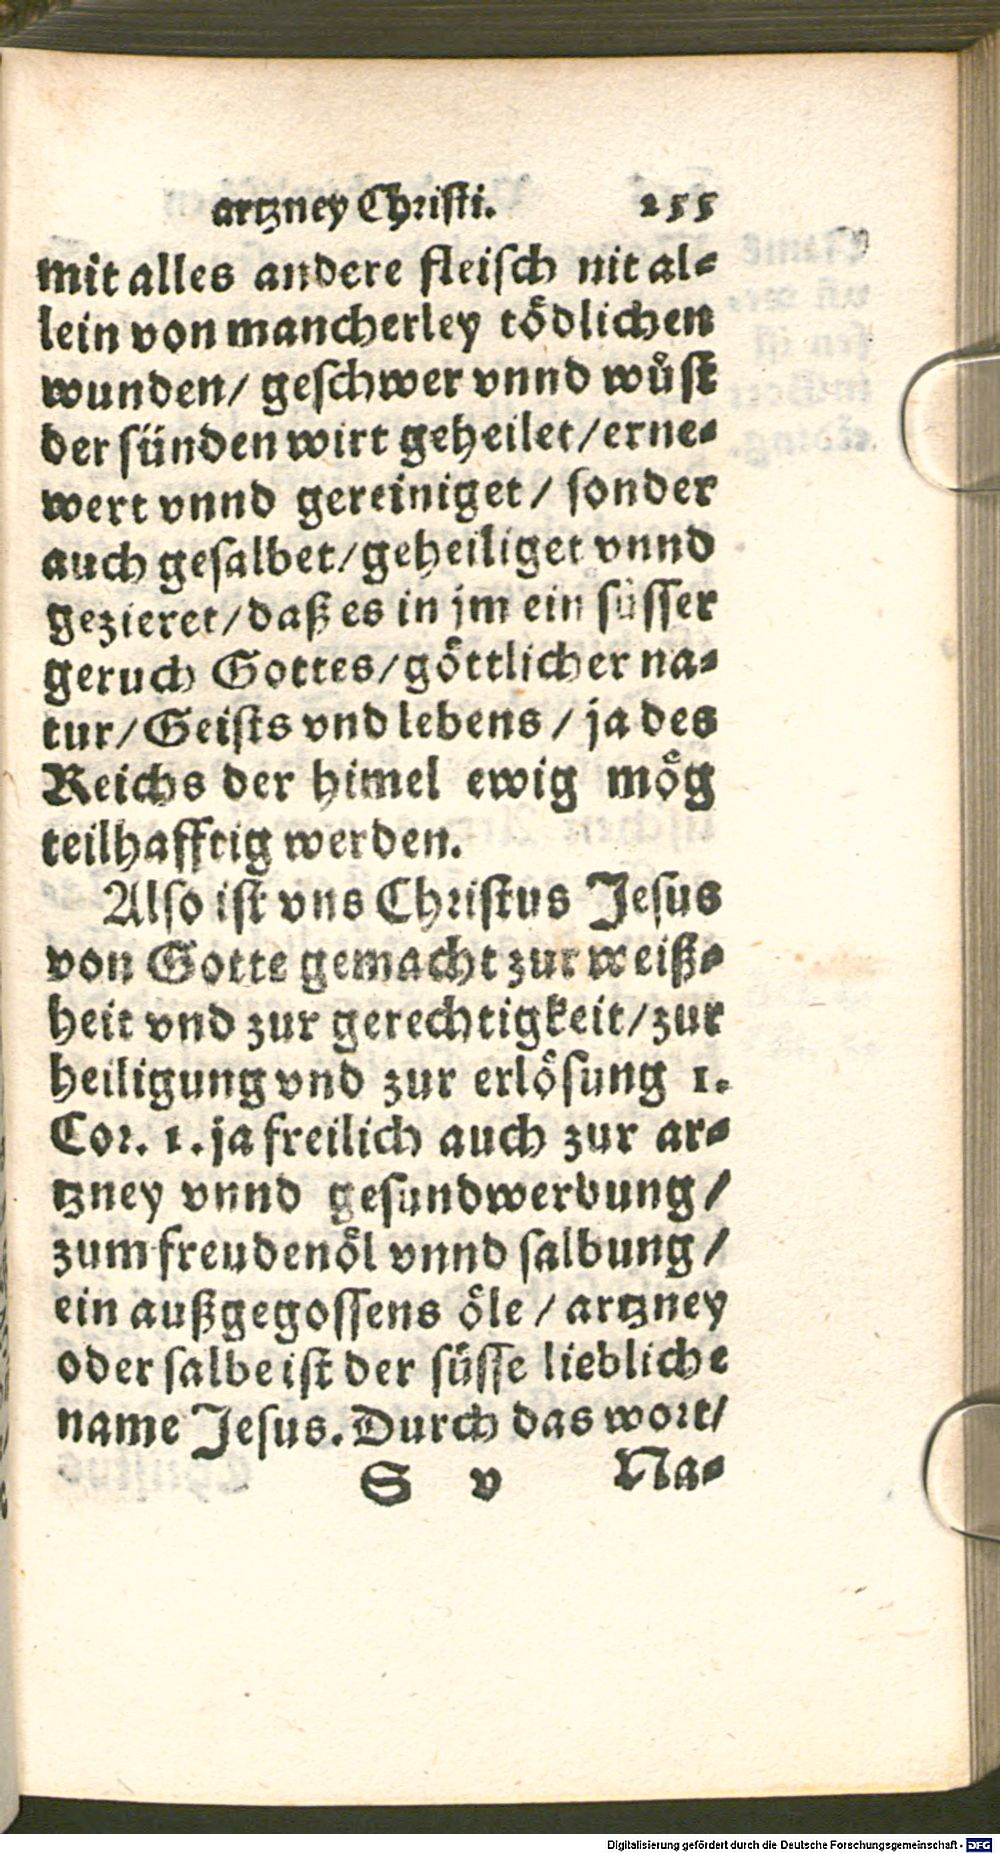 artzney Christi. 255
mit alles andere fleisch nit al⸗
lein von mancherley tödlichen
wunden/ geschwer vnnd wůst
der sünden wirt geheilet/erne⸗
wert vnnd gereiniget/ sonder
auch gesalbet/geheiliget vnnd
gezieret/daß es in jm ein süsser
geruch Gottes/göttlicher na⸗
tur/Geists vnd lebens/ ja des
Reichs der himel ewig mög
teilhafftig werden.
Also ist vns Christus Jesus
von Gotte gemacht zur weiß⸗
heit vnd zur gerechtigkeit/zur
heiligung vnd zur erlösung 1.
Cor. 1. ja freilich auch zur ar⸗
tzney vnnd gesundwerbung/
zum freudenöl vnnd salbung/
ein außgegossens öle/ artzney
oder salbe ist der süsse liebliche
name Jesus. Durch das wort/
S v Na⸗
Digitalisierung gefördert durch die Deutsche Forschungsgemeinschaft - DFG